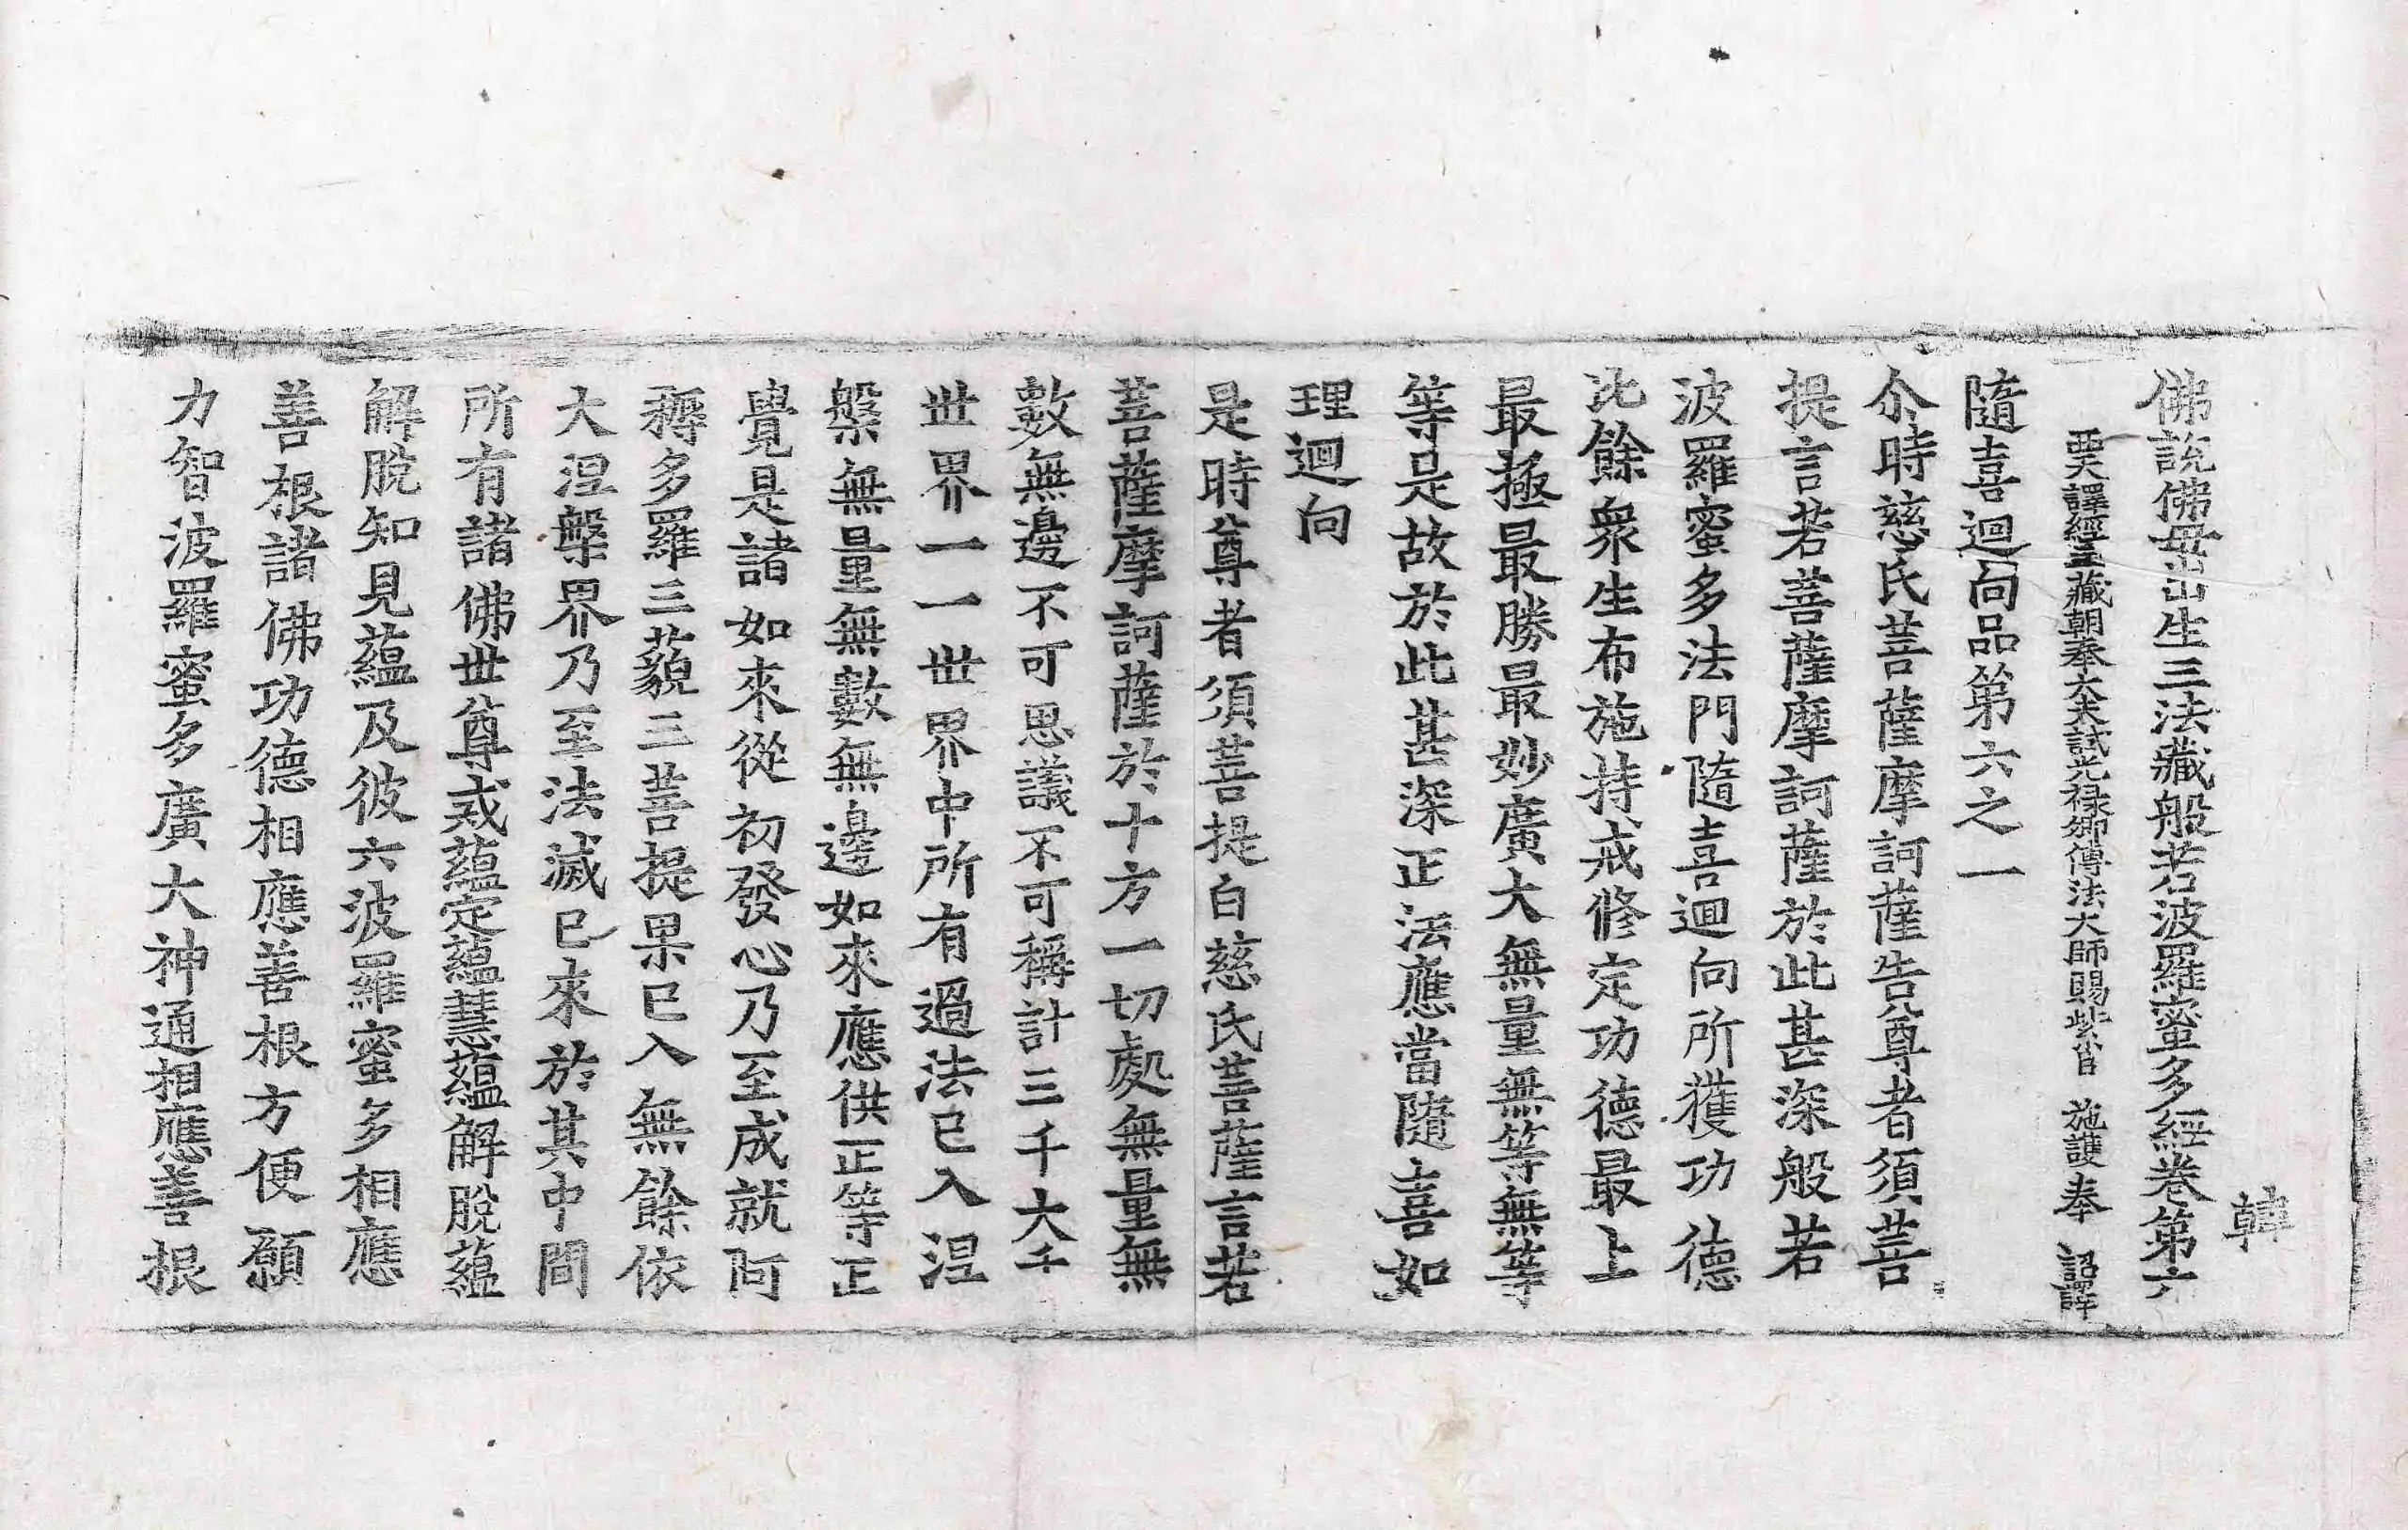 佛說佛毋出生三法藏般若波羅蜜多經卷第六
韓
西天譯經三藏朝奉大夫試光禄卿傳法大師賜紫臣 施護奉 詔譯
隨喜迴向品第六之一
尒時慈氏菩薩摩訶薩告尊者須菩
提言若菩薩摩訶薩於此甚深般若
波羅蜜多法門隨喜迴向所獲功德
比餘衆生布施持戒修定功德最上
最極最勝最妙廣大無量無等無等
等是故於此甚深正法應當隨喜如
理迴向
是時尊者須菩提白慈氏菩薩言若
菩薩摩訶薩於十方一切處無量無
數無邊不可思議不可稱計三千大千
世界一一世界中所有過法已入涅
槃無量無數無邊如來應供正等正
覺是諸如來從初發心乃至成就阿
耨多羅三藐三菩提果已入無餘依
大涅槃界乃至法滅已來於其中間
所有諸佛世尊戒蘊定蘊慧蘊解脫蘊
解脫知見蘊及彼六波羅蜜多相應
善根諸佛功德相應善根方便願
力智波羅蜜多廣大神通相應善根